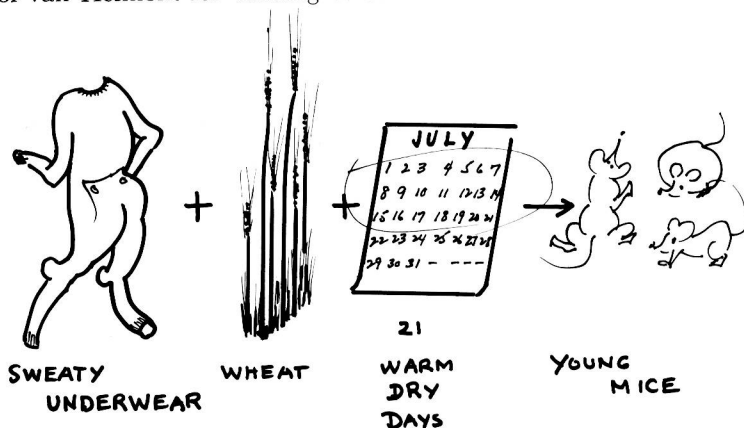 JULY
1 2 3 4 5 6 7
8 9 10 11 12 13 14
15 16 17 18 19 20 21
22 23 24 25 26 27 28
29 30 31 - - - - -
21
SWEATY UNDERWEAR
+
WHEAT
+
WARM
DRY
DAYS
YOUNG
MICE